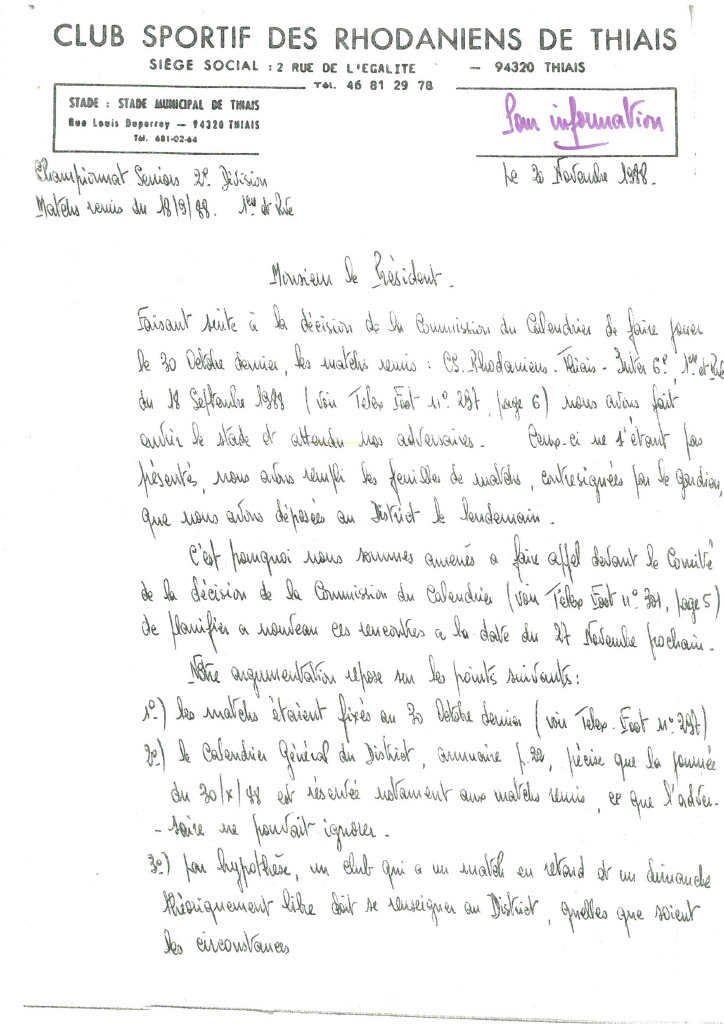 CLUB SPORTIF DES RHODANIENS DE THIAIS
SIÈGE SOCIAL : 2 RUE DE L'EGALITE — 94320 THIAIS
Tél. 46 81 29 78
STADE : STADE MUNICIPAL DE THIAIS
Rue Louis Duperrey — 94320 THIAIS
Tél. 681-02-64
Pour information
Championnat Seniors 2e Division
Matchs remis du 18/9/88. 1ère et Rve
Le 20 Novembre 1988.
Monsieur le Président.
Faisant suite à la décision de la Commission du Calendrier de faire jouer
le 30 Octobre dernier, les matchs remis : CS. Rhodaniens - Thiais - Inter 6e, 1ère et Rve
du 18 Septembre 1988 (voir Telex Foot n° 297, page 6) nous avons fait
ouvrir le stade et attendu nos adversaires. Ceux-ci ne s'étant pas
présentés, nous avons rempli les feuilles de matchs, contresignées par le gardien,
que nous avons déposées au District le lendemain.
C'est pourquoi nous sommes amenés a faire appel devant le Comité
de la décision de la Commission du Calendrier (voir Telex Foot n° 301, page 5)
de planifier a nouveau ces rencontres a la date du 27 Novembre prochain.
Notre argumentation repose sur les points suivants :
1°) les matchs étaient fixés au 30 Octobre dernier (voir Telex. Foot n° 297)
2°) le Calendrier Général du District, annuaire p.22, précise que la journée
du 30/X/88 est réservée notament aux matchs remis, ce que l'adver-
-saire ne pouvait ignorer.
3°) par hypothèse, un club qui a un match en retard et un dimanche
théoriquement libre doit se renseigner au District, quelles que soient
les circonstances